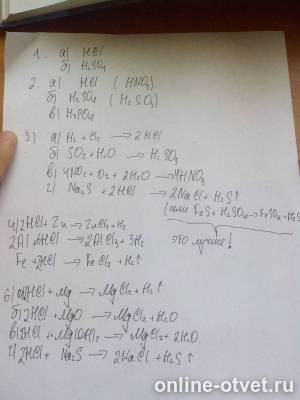 1. а) HCl
б) H₂SO₄
2. а) HCl (HNO₃)
б) H₂SO₄ (H₂SO₃)
в) H₃PO₄
3) а) H₂ + Cl₂ → 2HCl
б) SO₂ + H₂O → H₂SO₃
в) 4NO₂ + O₂ + 2H₂O → 4HNO₃
г) Na₂S + 2HCl → 2NaCl + H₂S↑
(или FeS + H₂SO₄ → FeSO₄ + H₂S
это лучше!
4) 2HCl + Zn → ZnCl₂ + H₂
2Al + 6HCl → 2AlCl₃ + 3H₂
Fe + 2HCl → FeCl₂ + H₂↑
6) а) 2HCl + Mg → MgCl₂ + H₂↑
б) 2HCl + MgO → MgCl₂ + H₂O
в) 2HCl + Mg(OH)₂ → MgCl₂ + 2H₂O
г) 2HCl + Na₂S → 2NaCl + H₂S↑
online-otvet.ru